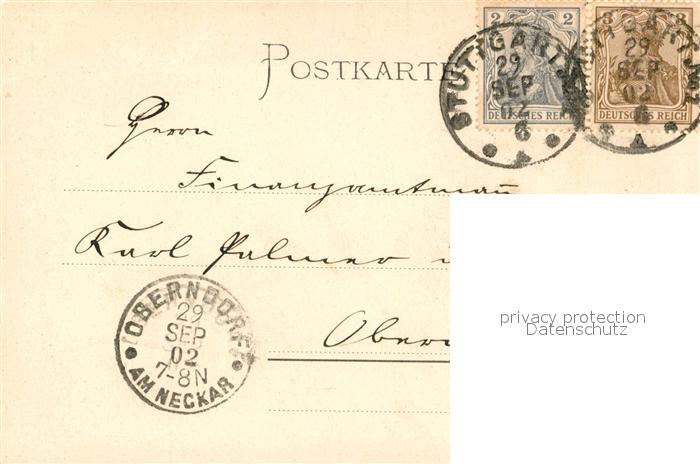 2 2 3 3
DEUTSCHES REICH DEUTSCHES REICH
STUTTGART
29
SEP
02
6
A
29
SEP
02
6
A
POSTKARTE
Herrn
Finanzamtmañ
Karl Palmer
Obern
OBERNDORF
29
SEP
02
7-8N
AM NECKAR
privacy protection
Datenschutz